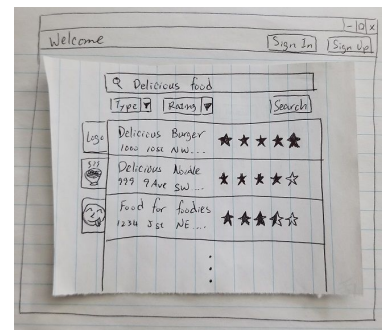 Welcome
Sign In
Sign Up
Delicious food
Type
Rating
Search
Logo
Delicious Burger
1000 10st NW...
Delicious Noodle
999 9 Ave SW...
Food for foodies
1234 Jst NE...